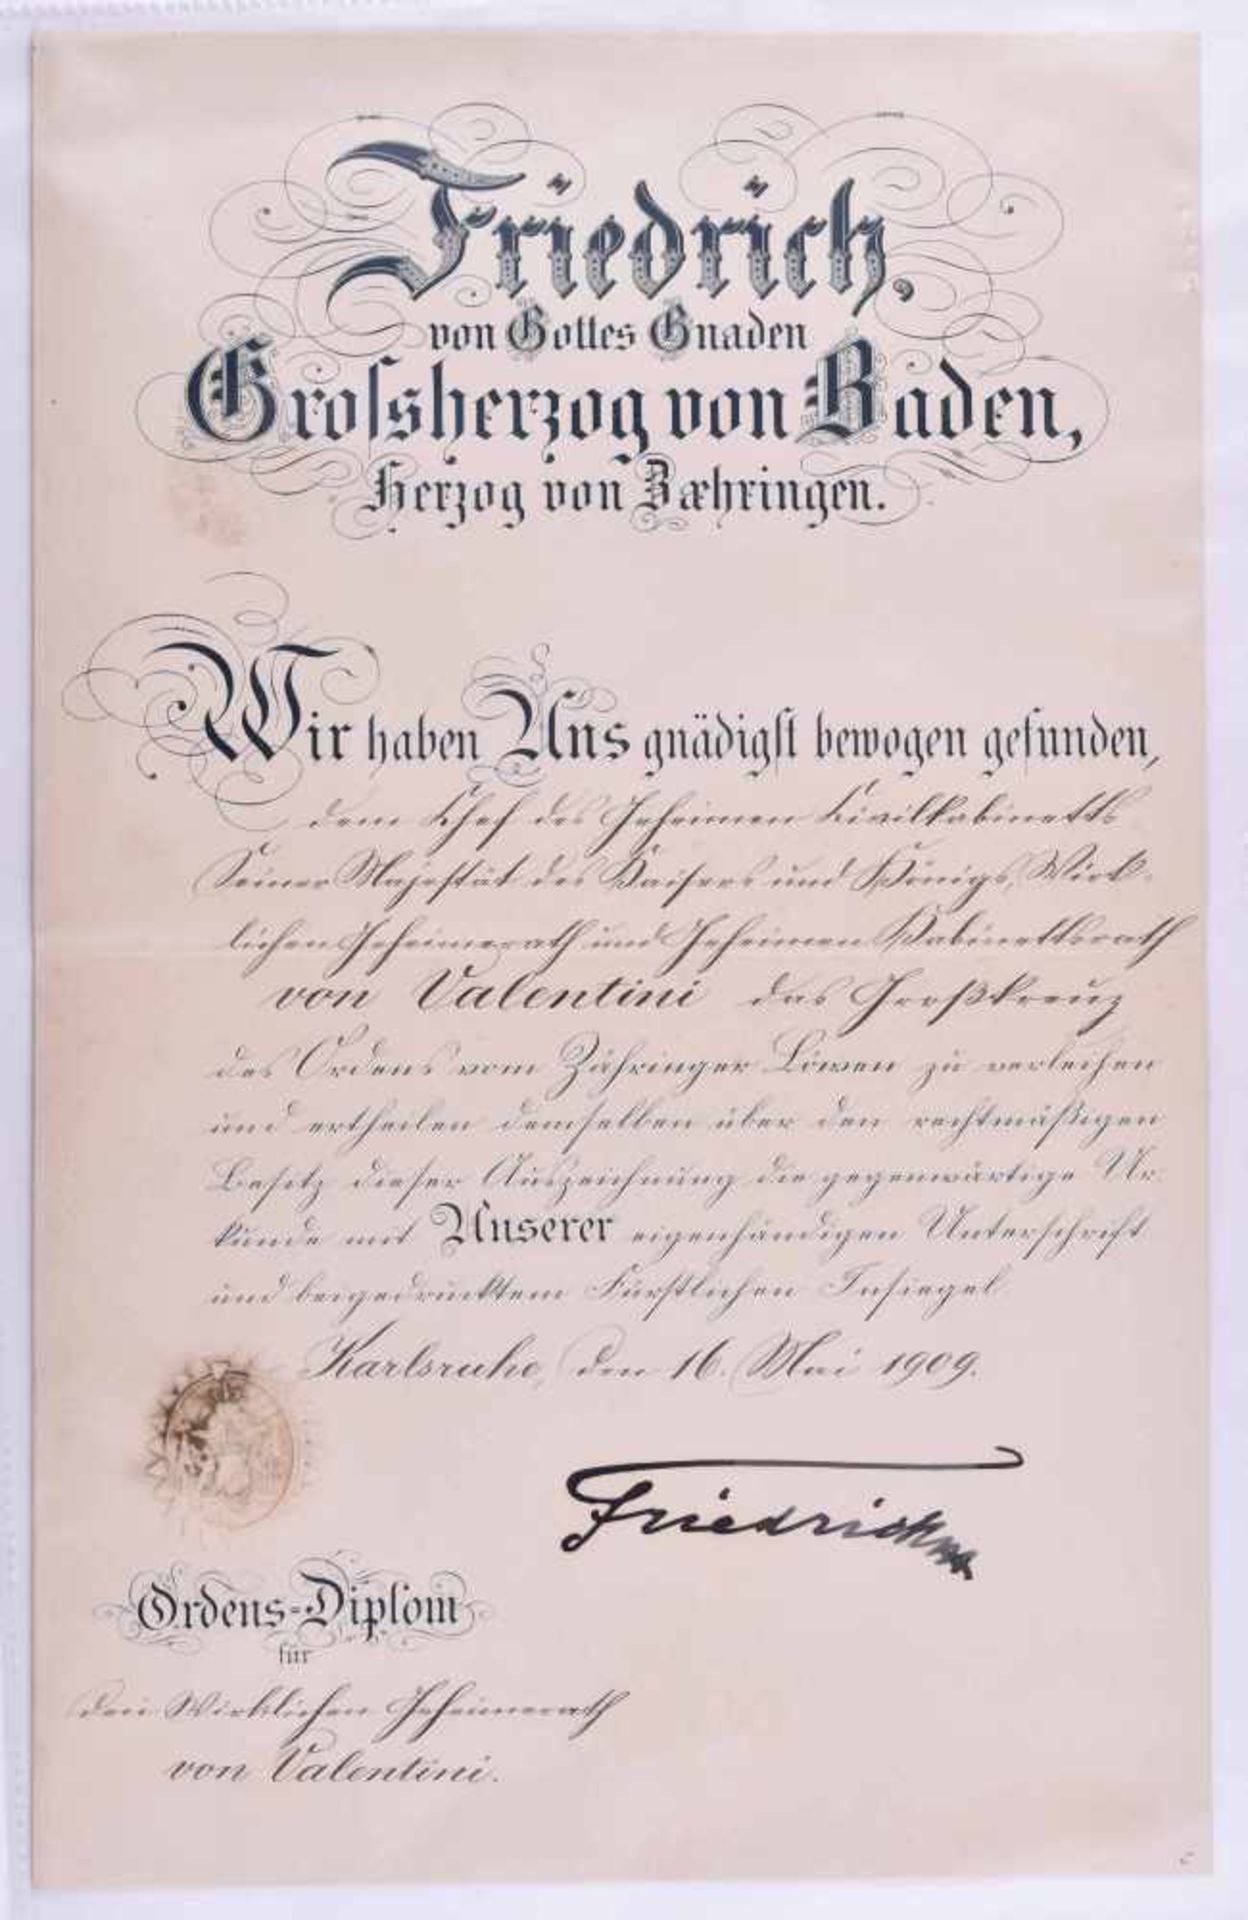 Friedrich,
von Gottes Gnaden
Grofsherzog von Baden,
Herzog von Zæhringen.
Wir haben Uns gnädigst bewogen gefunden,
dem Chef des Geheimen Civilkabinetts
Seiner Majestät des Kaisers und Königs, Wirk-
lichen Geheimerath und Geheimen Kabinettsrath
von Valentini das Großkreuz
des Ordens vom Zähringer Löwen zu verleihen
und ertheilen demselben über den rechtmäßigen
Besitz dieser Auszeichnung die gegenwärtige Ur-
kunde mit Unserer eigenhändigen Unterschrift
und beigedrucktem Fürstlichen Insiegel.
Karlsruhe, den 16. Mai 1909.
Friedrich
Ordens-Diplom
für
den Wirklichen Geheimerath
von Valentini.